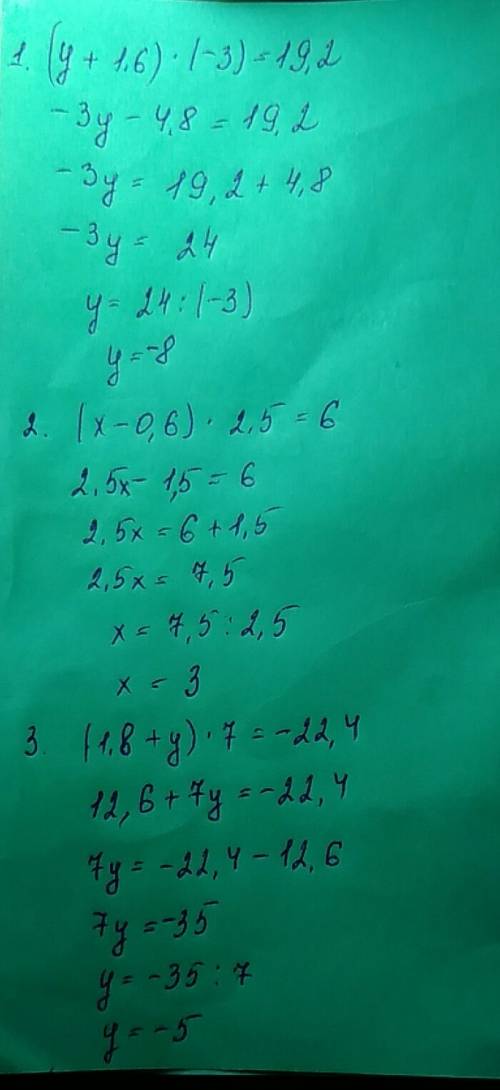 1. (y + 1.6) · (-3) = 19,2
-3y - 4,8 = 19,2
-3y = 19,2 + 4,8
-3y = 24
y = 24 : (-3)
y = -8
2. (x - 0,6) · 2,5 = 6
2,5x - 1,5 = 6
2,5x = 6 + 1,5
2,5x = 7,5
x = 7,5 : 2,5
x = 3
3. (1,8 + y) · 7 = -22,4
12,6 + 7y = -22,4
7y = -22,4 - 12,6
7y = -35
y = -35 : 7
y = -5